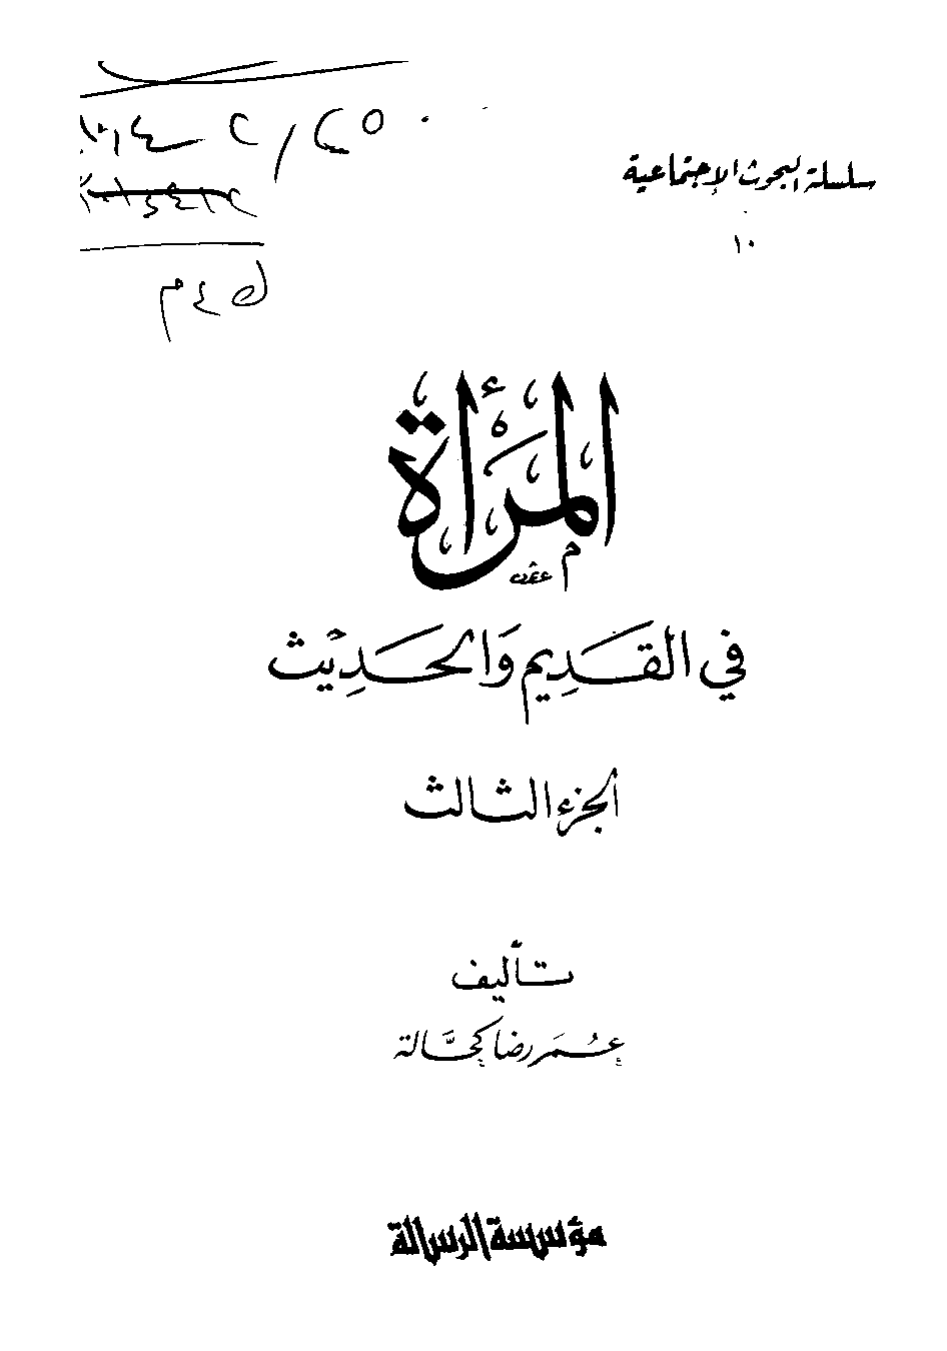 سلسلة البحوث الإجتماعية
١٠
المرأة
في القديم والحديث
الجزء الثالث
تأليف
عمر رضا كحالة
مؤسسة الرسالة